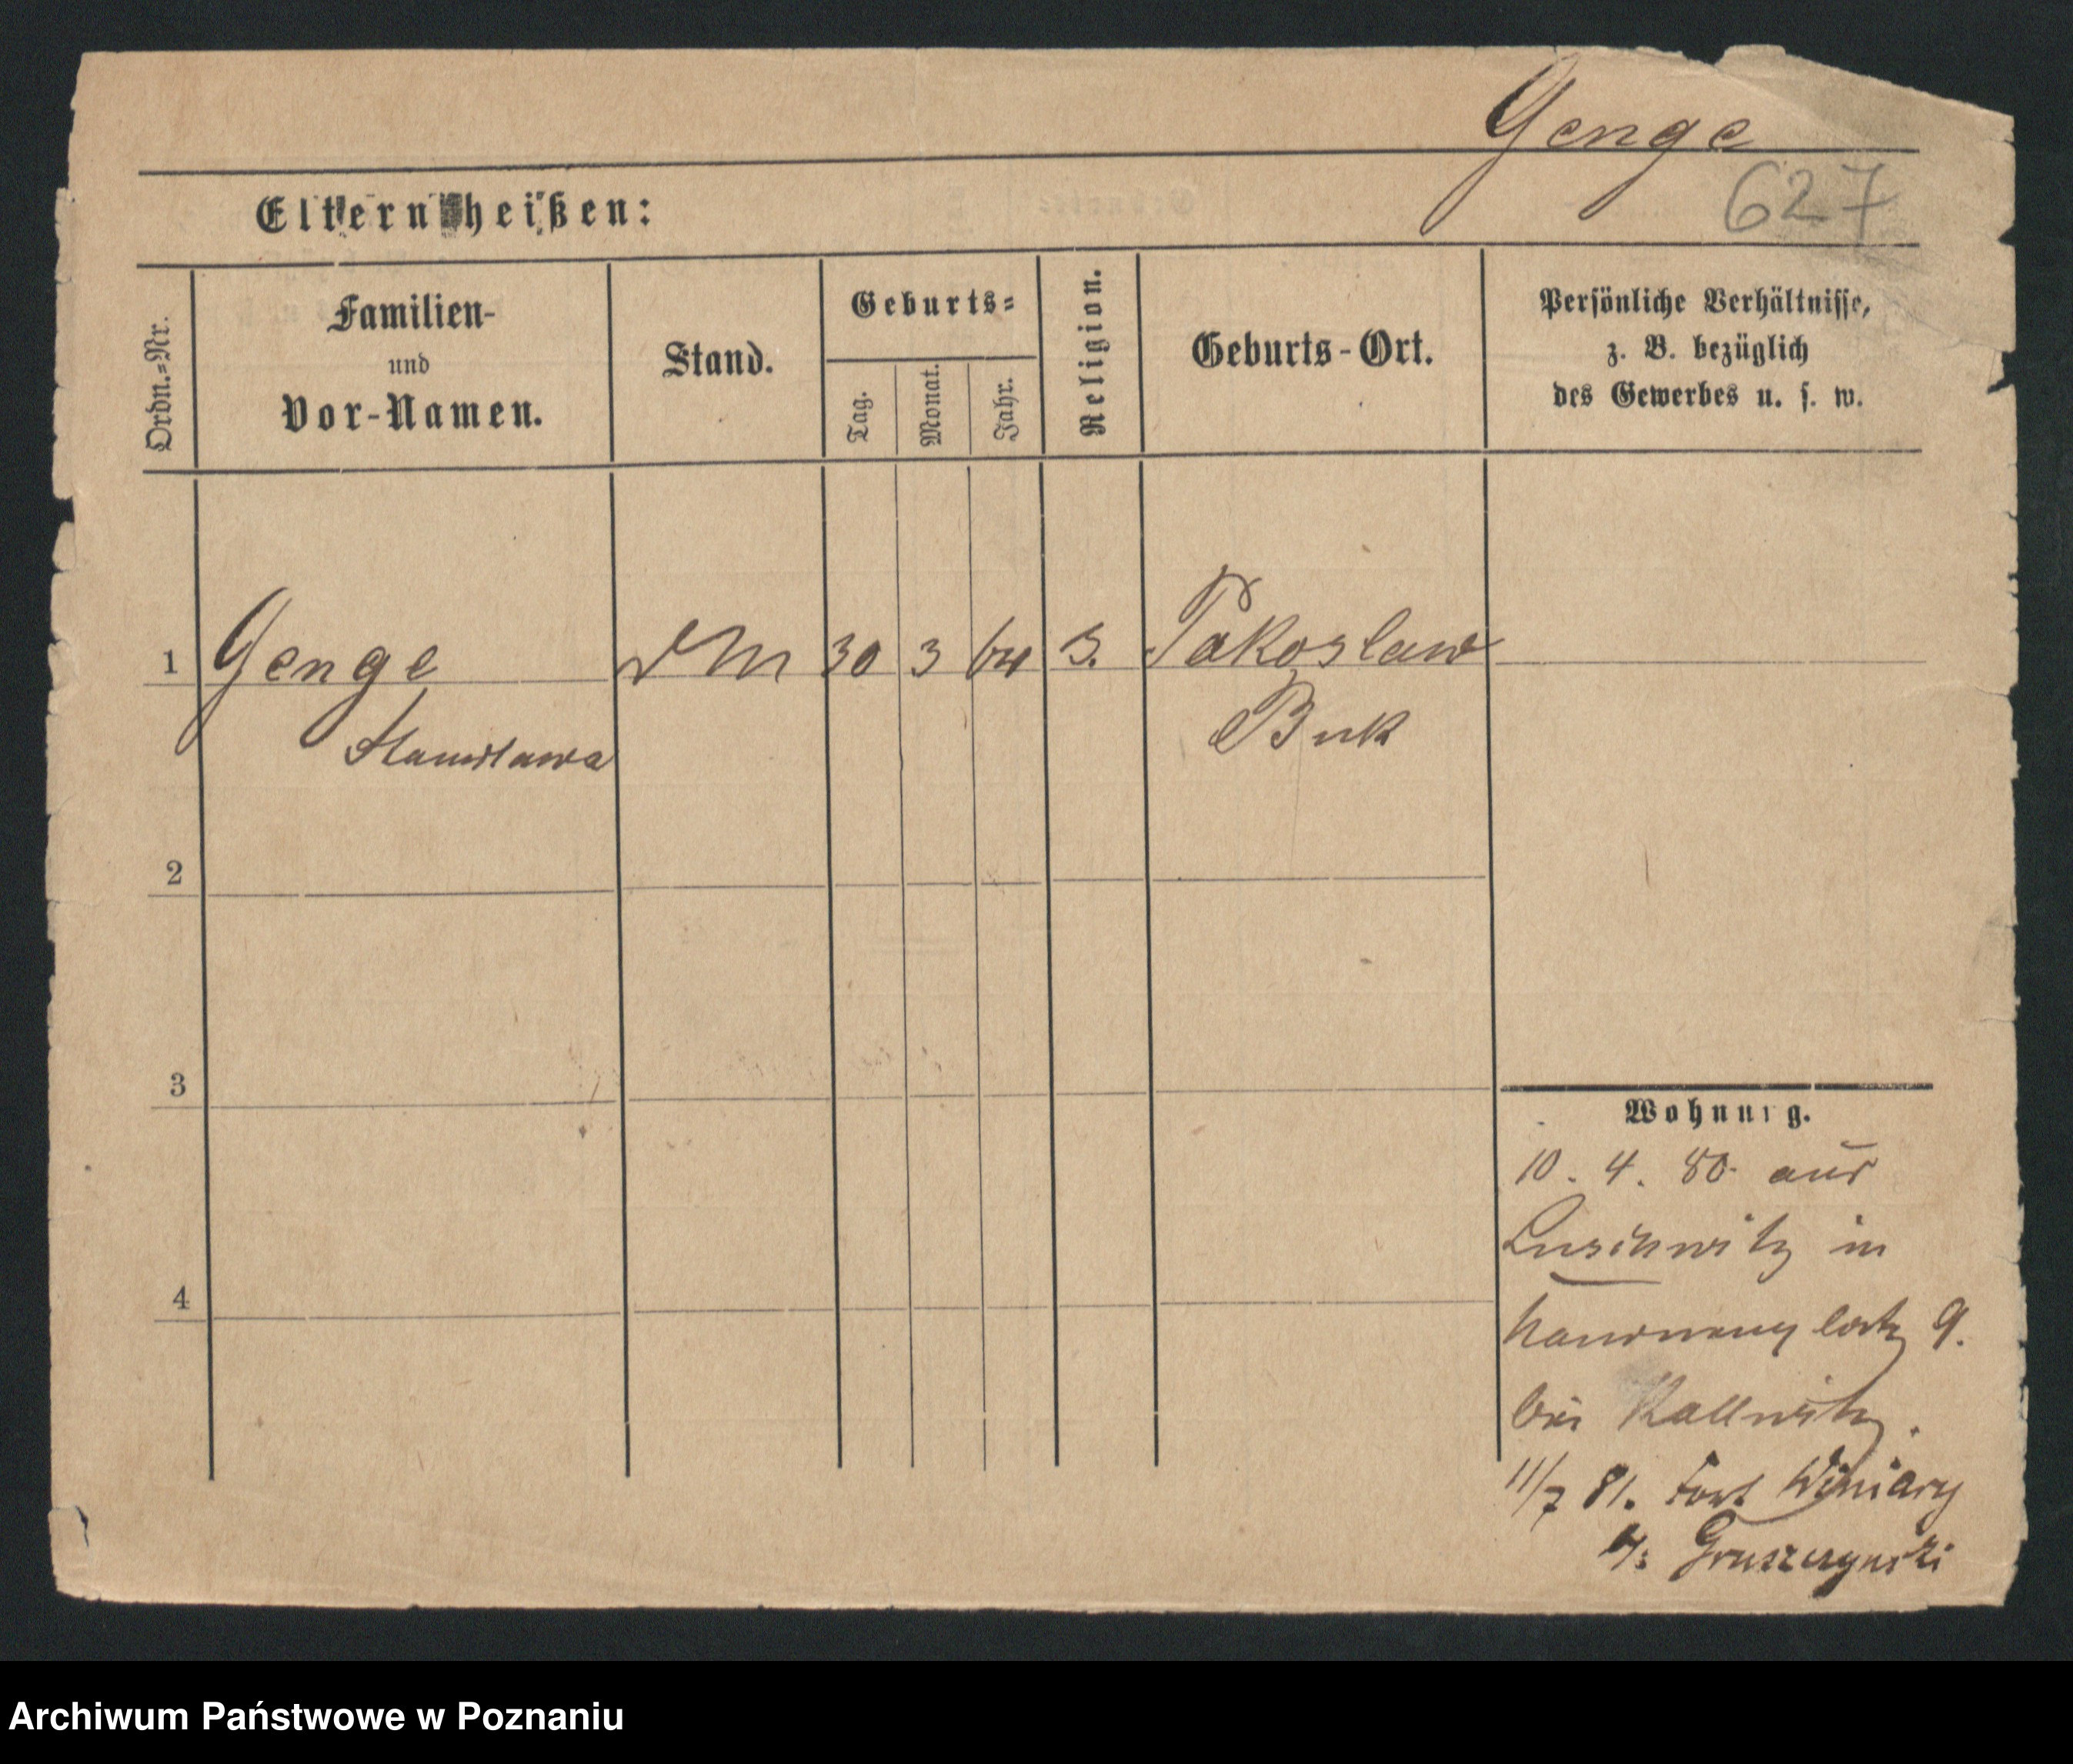 Genge
627
Eltern heißen:
Ordn.=Nr.
Familien-
und
Vor-Namen.
Stand.
Geburts=
Tag.
Monat.
Jahr.
Religion.
Geburts-Ort.
Persönliche Verhältnisse,
z. B. bezüglich
des Gewerbes u. s. w.
1 Genge 30 3 64 Pakoslaw
Stanislawa Buk
2
3
4
Wohnung.
10. 4. 80 aus
Luschwitz in
9.
bei Kallwitz.
11/7 81. Fort Winiary
b/: Gruszczynski
Archiwum Państwowe w Poznaniu